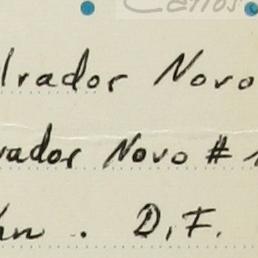 Carlos
lvador Novo
vador Novo #
hn. D.F.